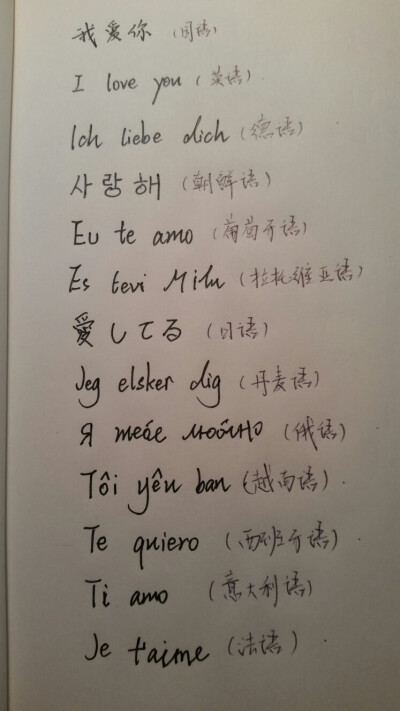 我爱你（国语）
I love you（英语）.
Ich liebe dich（德语）
사랑해（朝鲜语）
Eu te amo（葡萄牙语）
Es tevi Milu（拉托维亚语）
愛してる（日语）
Jeg elsker dig（丹麦语）
Я тебе люблю（俄语）
Tôi yêu ban（越南语）.
Te quiero（西班牙语）.
Ti amo（意大利语）
Je t'aime（法语）.